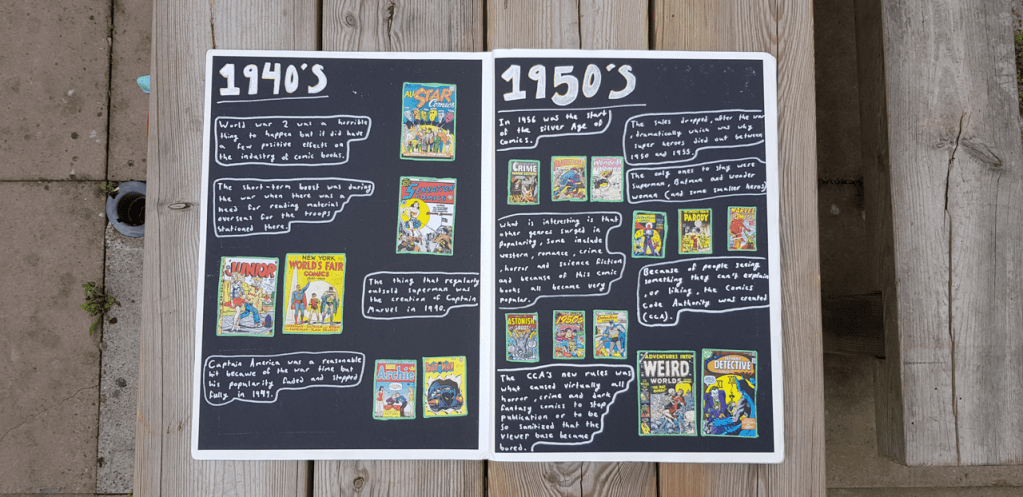 1940's
World war 2 was a horrible
thing to happen but it did have
a few positive effects on
the industry of comic books.
ALL STAR
Comics
The short-term boost was during
the war when there was a
need for reading material
overseas for the troops
stationed there.
SENSATION
COMICS
JUNIOR
NEW YORK
WORLD'S FAIR
COMICS
The thing that regularly
outsold superman was
the creation of Captain
Marvel in 1940.
Captain America was a reasonable
hit because of the war time but
his popularity faded and stopped
fully in 1949.
Archie
1950's
In 1956 was the start
of the Silver Age of
Comics.
The sales dropped, after the war
, dramatically which was why
super heroes died out between
1950 and 1955.
CRIME
The only ones to stay were
Superman, Batman and wonder
woman (and some smaller heros)
What is interesting is that
other genres surged in
popularity, some include
western, romance, crime
, horror and science fiction
and because of this comic
books all became very
popular.
PARODY
MARVEL
Because of people seeing
something they can't explain
, or liking, the Comics
Code Authority was created
(CCA).
ASTONISH
1950s
The CCA's new rules was
what caused virtually all
horror, crime and dark
fantasy comics to stop
publication or to be
so sanitized that the
viewer base became
bored.
ADVENTURES INTO
WEIRD
WORLDS
DETECTIVE